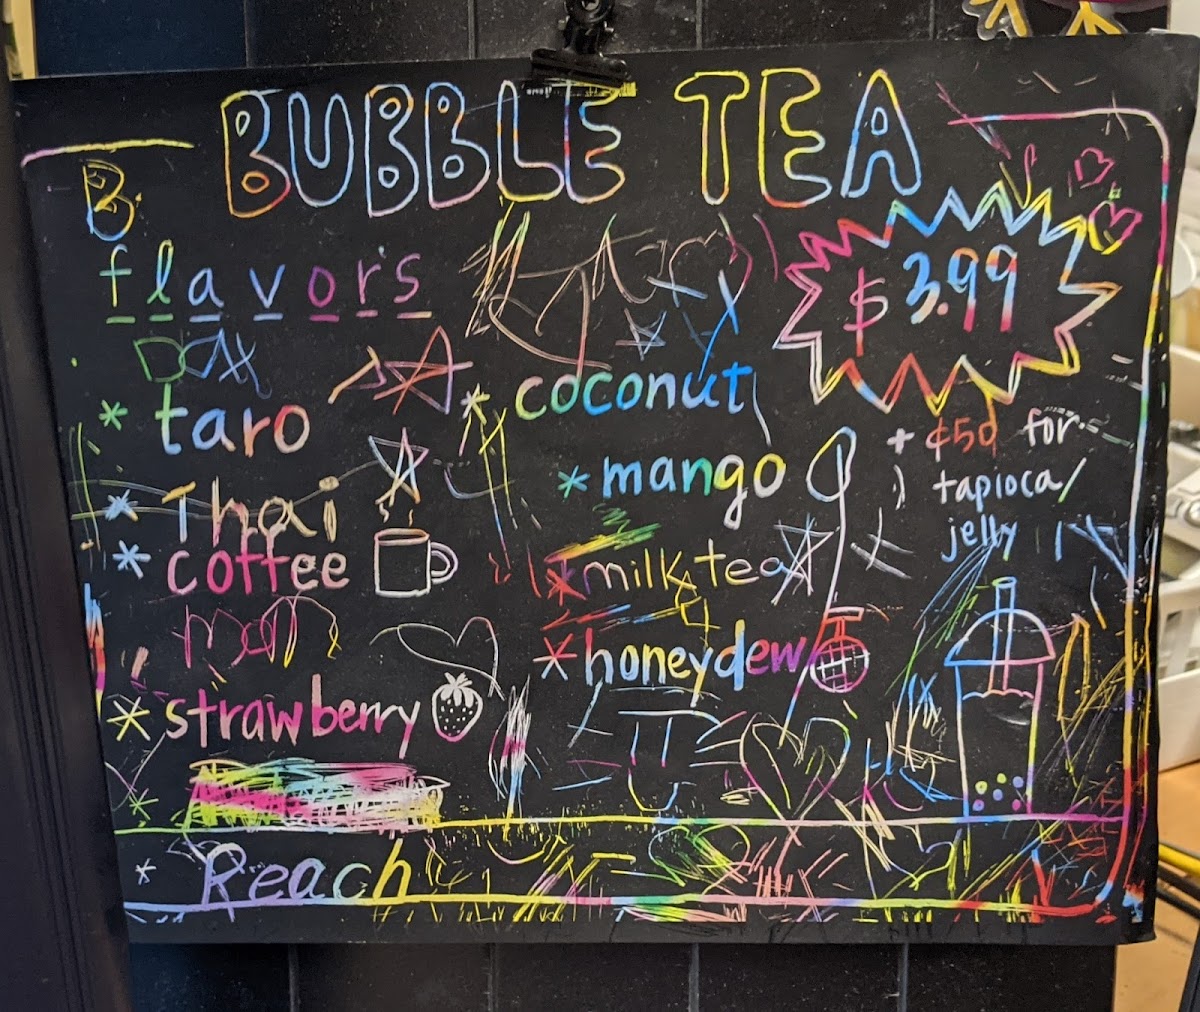 BUBBLE TEA
B
flavors
$3.99
* taro
* Thai
* coffee
* strawberry
* Peach
* coconut
* mango
* milk tea
* honeydew
+ ¢50 for
tapioca/
jelly